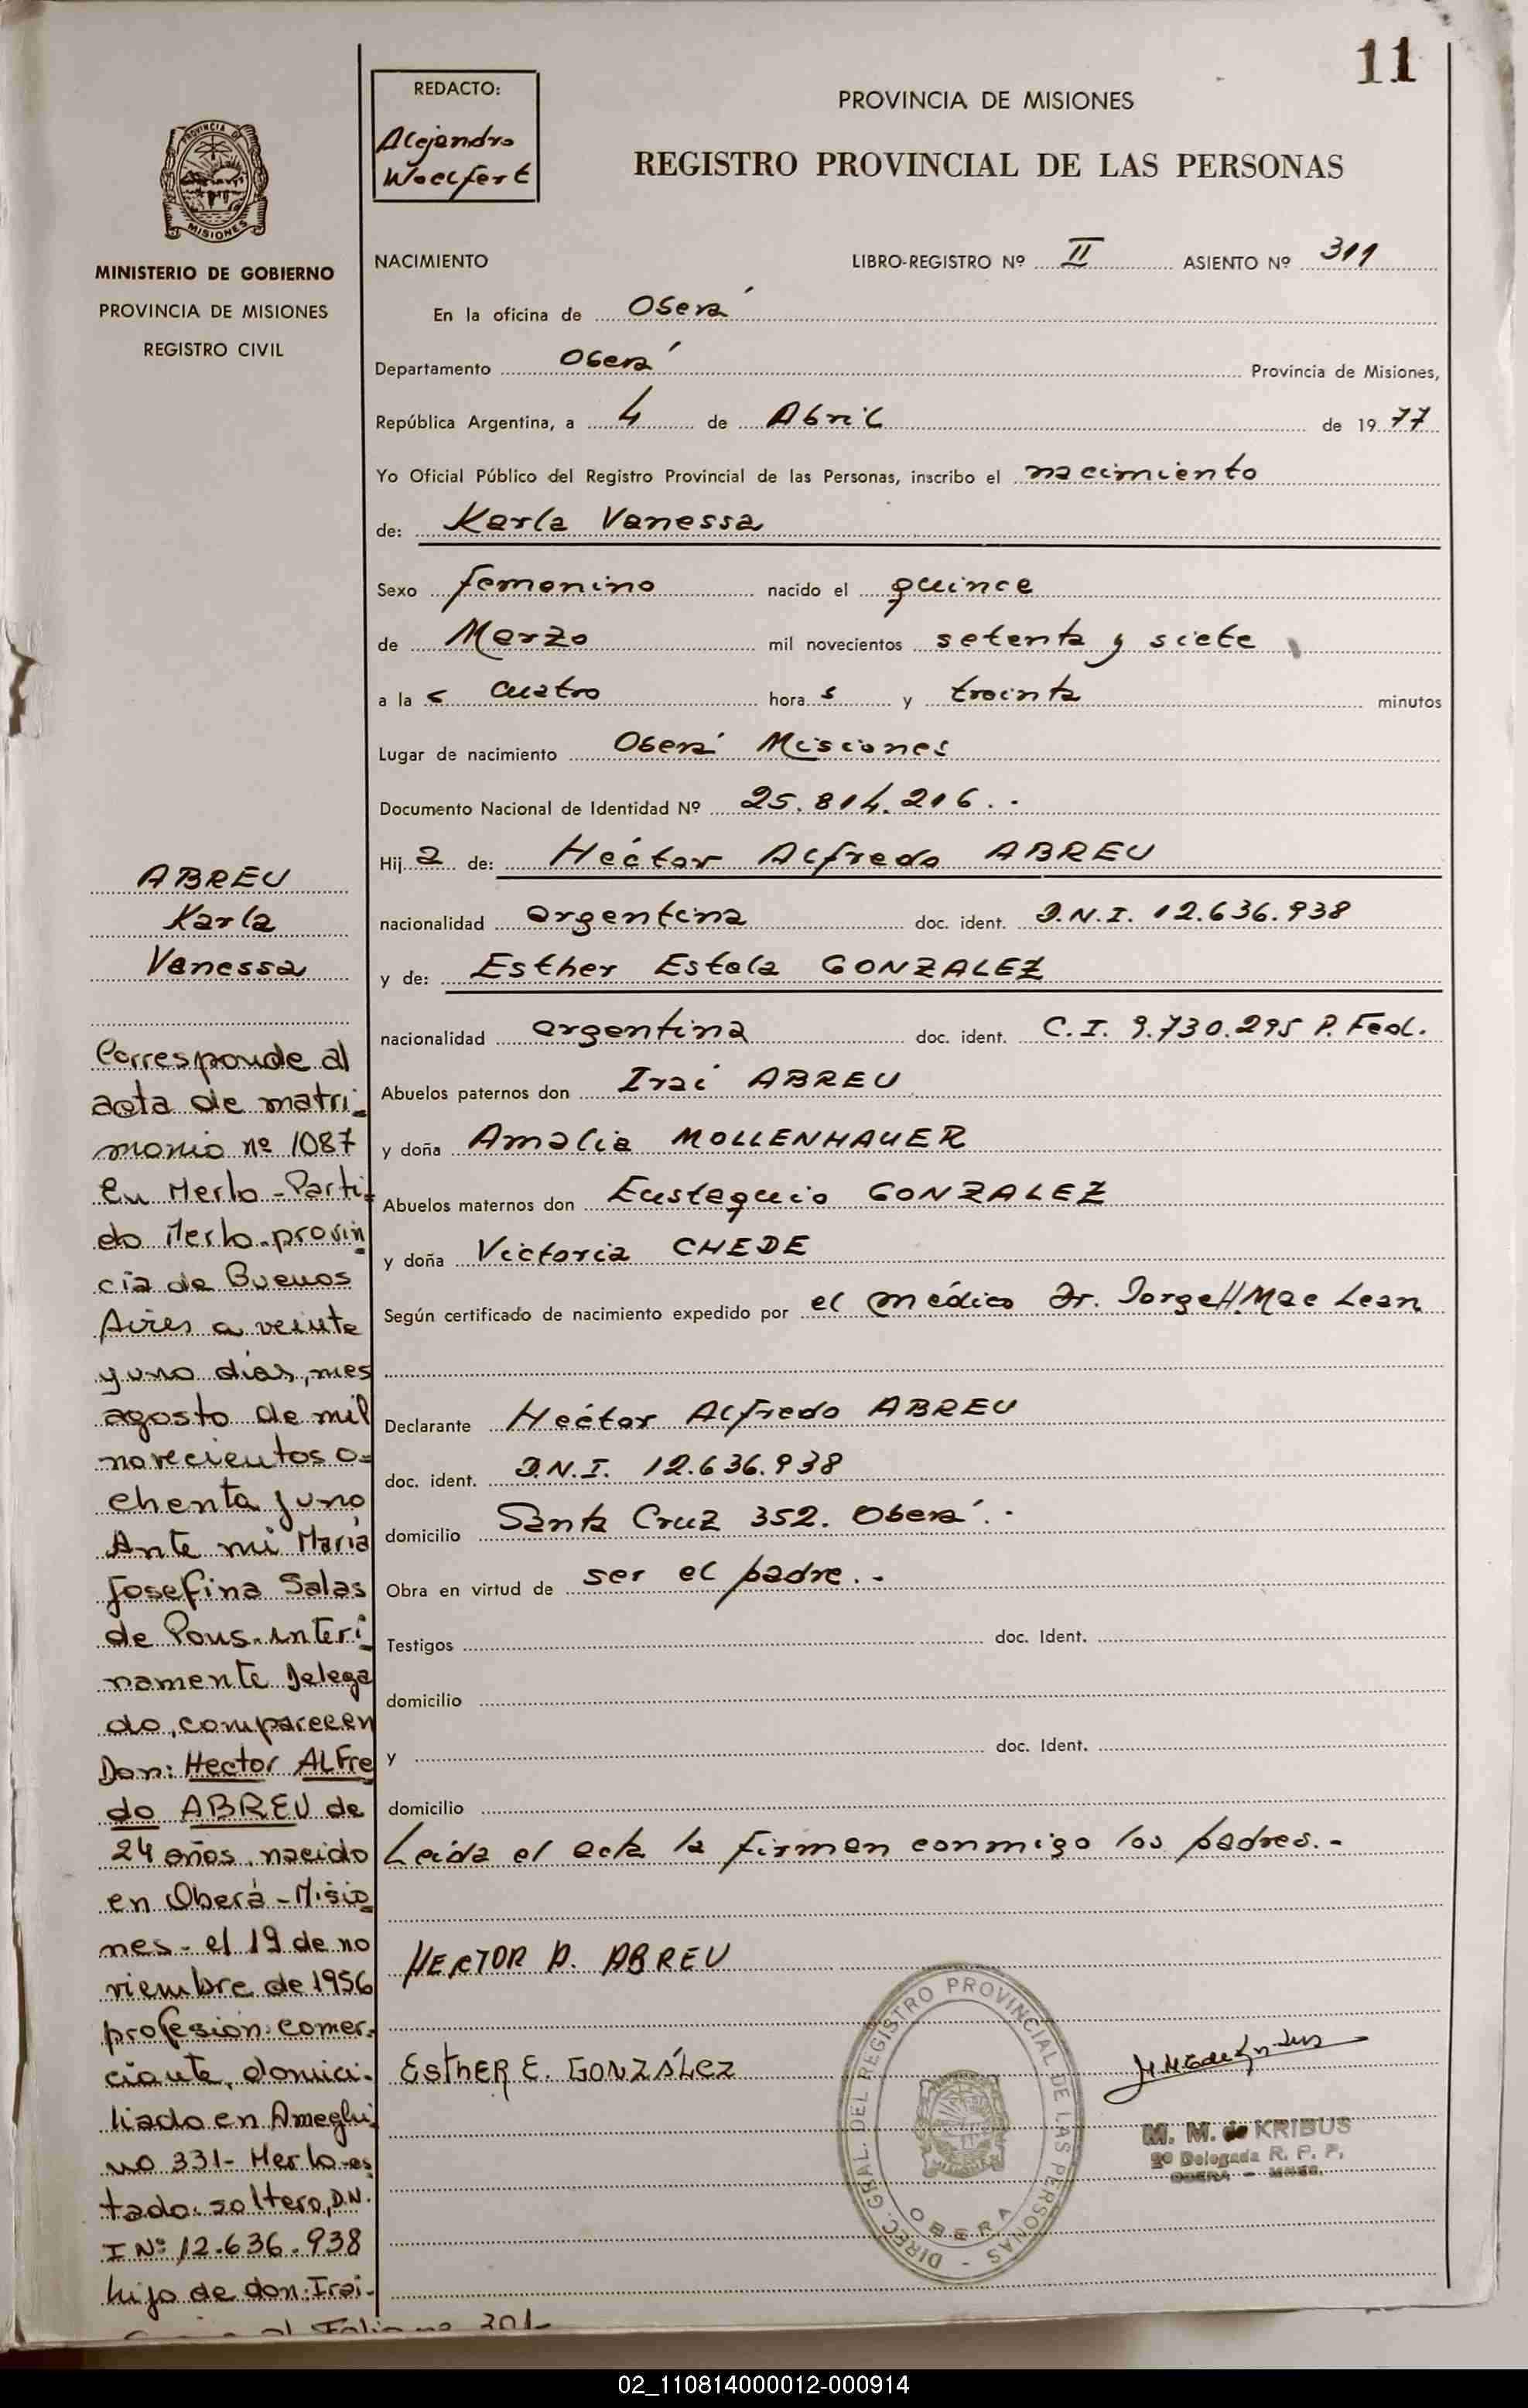 11
REDACTO:
Alejandro
Woelfert
PROVINCIA DE MISIONES
REGISTRO PROVINCIAL DE LAS PERSONAS
PROVINCIA DE
MISIONES
MINISTERIO DE GOBIERNO
PROVINCIA DE MISIONES
REGISTRO CIVIL
NACIMIENTO LIBRO-REGISTRO Nº II ASIENTO Nº 311
En la oficina de Oberá
Departamento Oberá Provincia de Misiones,
República Argentina, a 4 de Abril de 1977
Yo Oficial Público del Registro Provincial de las Personas, inscribo el nacimiento
de: Karla Vanessa
Sexo femenino nacido el quince
de Marzo mil novecientos setenta y siete
a las cuatro horas y treinta minutos
Lugar de nacimiento Oberá Misiones
Documento Nacional de Identidad Nº 25.814.216.-
Hija de: Héctor Alfredo ABREU
nacionalidad argentina doc. ident. D.N.I. 12.636.938
y de: Esther Estela GONZALEZ
nacionalidad argentina doc. ident. C.I. 9.730.295 P. Fed.
Abuelos paternos don Iraí ABREU
y doña Amalia MOLLENHAUER
Abuelos maternos don Eustaquio GONZALEZ
y doña Victoria CHEDE
Según certificado de nacimiento expedido por el médico Dr. Jorge H. Mac Lean
Declarante Héctor Alfredo ABREU
doc. ident. D.N.I. 12.636.938
domicilio Santa Cruz 352. Oberá.-
Obra en virtud de ser el padre.-
Testigos doc. Ident.
domicilio
y doc. Ident.
domicilio
Leída el acta la firman conmigo los padres.-
HECTOR A. ABREU
ESTHER E. GONZÁLEZ
DIREC. GRAL. DEL REGISTRO PROVINCIAL DE LAS PERSONAS -
OBERA
M. M. de KRIBUS
2º Delegada R. P. P.
OBERA - MNES.
ABREU
Karla
Vanessa
Corresponde al
acta de matri-
monio nº 1087
En Merlo - Parti-
do Merlo - provin-
cia de Buenos
Aires a veinte
y uno días, mes
agosto de mil
novecientos o-
chenta y uno
Ante mi María
Josefina Salas
de Pous - interi-
namente Delega
do, comparecen
Don: Hector ALFre
do ABREU de
24 años, nacido
en Oberá - Misio-
nes - el 19 de no
viembre de 1956
profesion: comer-
ciante, domici-
liado en Ameghi-
no 331 - Merlo - es
tado: soltero, D.N.
I Nº: 12.636.938
hijo de don: Irai-
al Folio nº 301-
02_110814000012-000914